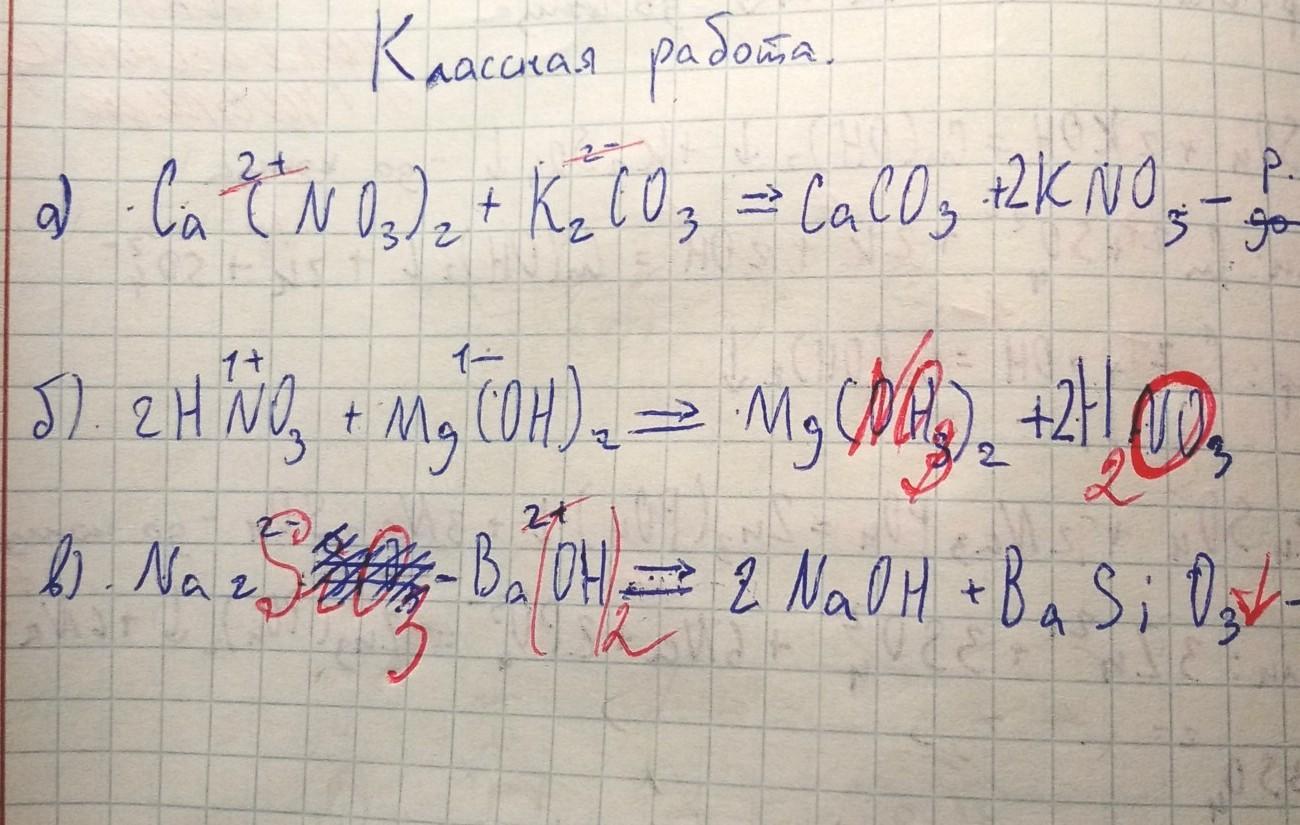 Классная работа.
а) Ca²⁺(NO₃)₂ + K₂²⁻CO₃ ⇒ CaCO₃ + 2KNO₃ – р.
б). 2HN¹⁺O₃ + Mg¹⁻(OH)₂ ⇒ Mg(NO₃)₂ + 2H₂O
в). Na₂²⁻SiO₃ - Ba²⁺(OH)₂ ⇒ 2NaOH + BaSiO₃↓ -